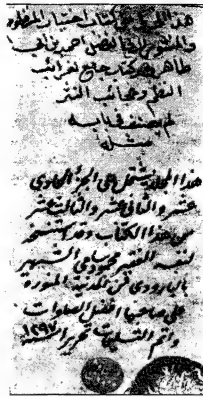 هذا المجلد من كتاب اختيار المنظوم
والمنثور لأبى الفضل أحمد بن أبى
طاهر وهو كتاب جامع لغرائب
النظم وعجائب النثر
لم يصنف فى بابه
مثله
هذا المجلد يشتمل على الجزء الحادى
عشر والثانى عشر والثالث عشر
من هذا الكتاب وقد استنسخ
لنفسه الفقير محمود سامى الشهير
بالبارودى من المدينة المنوره
على صاحبها أفضل الصلوات
وأتم التسليمات تحريرا سنة ١٢٩٧